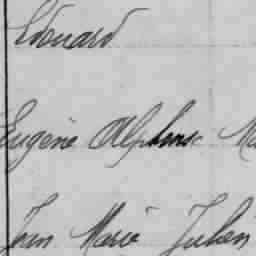 Edouard
Eugène Alphonse Ma
Jean Marie Julien